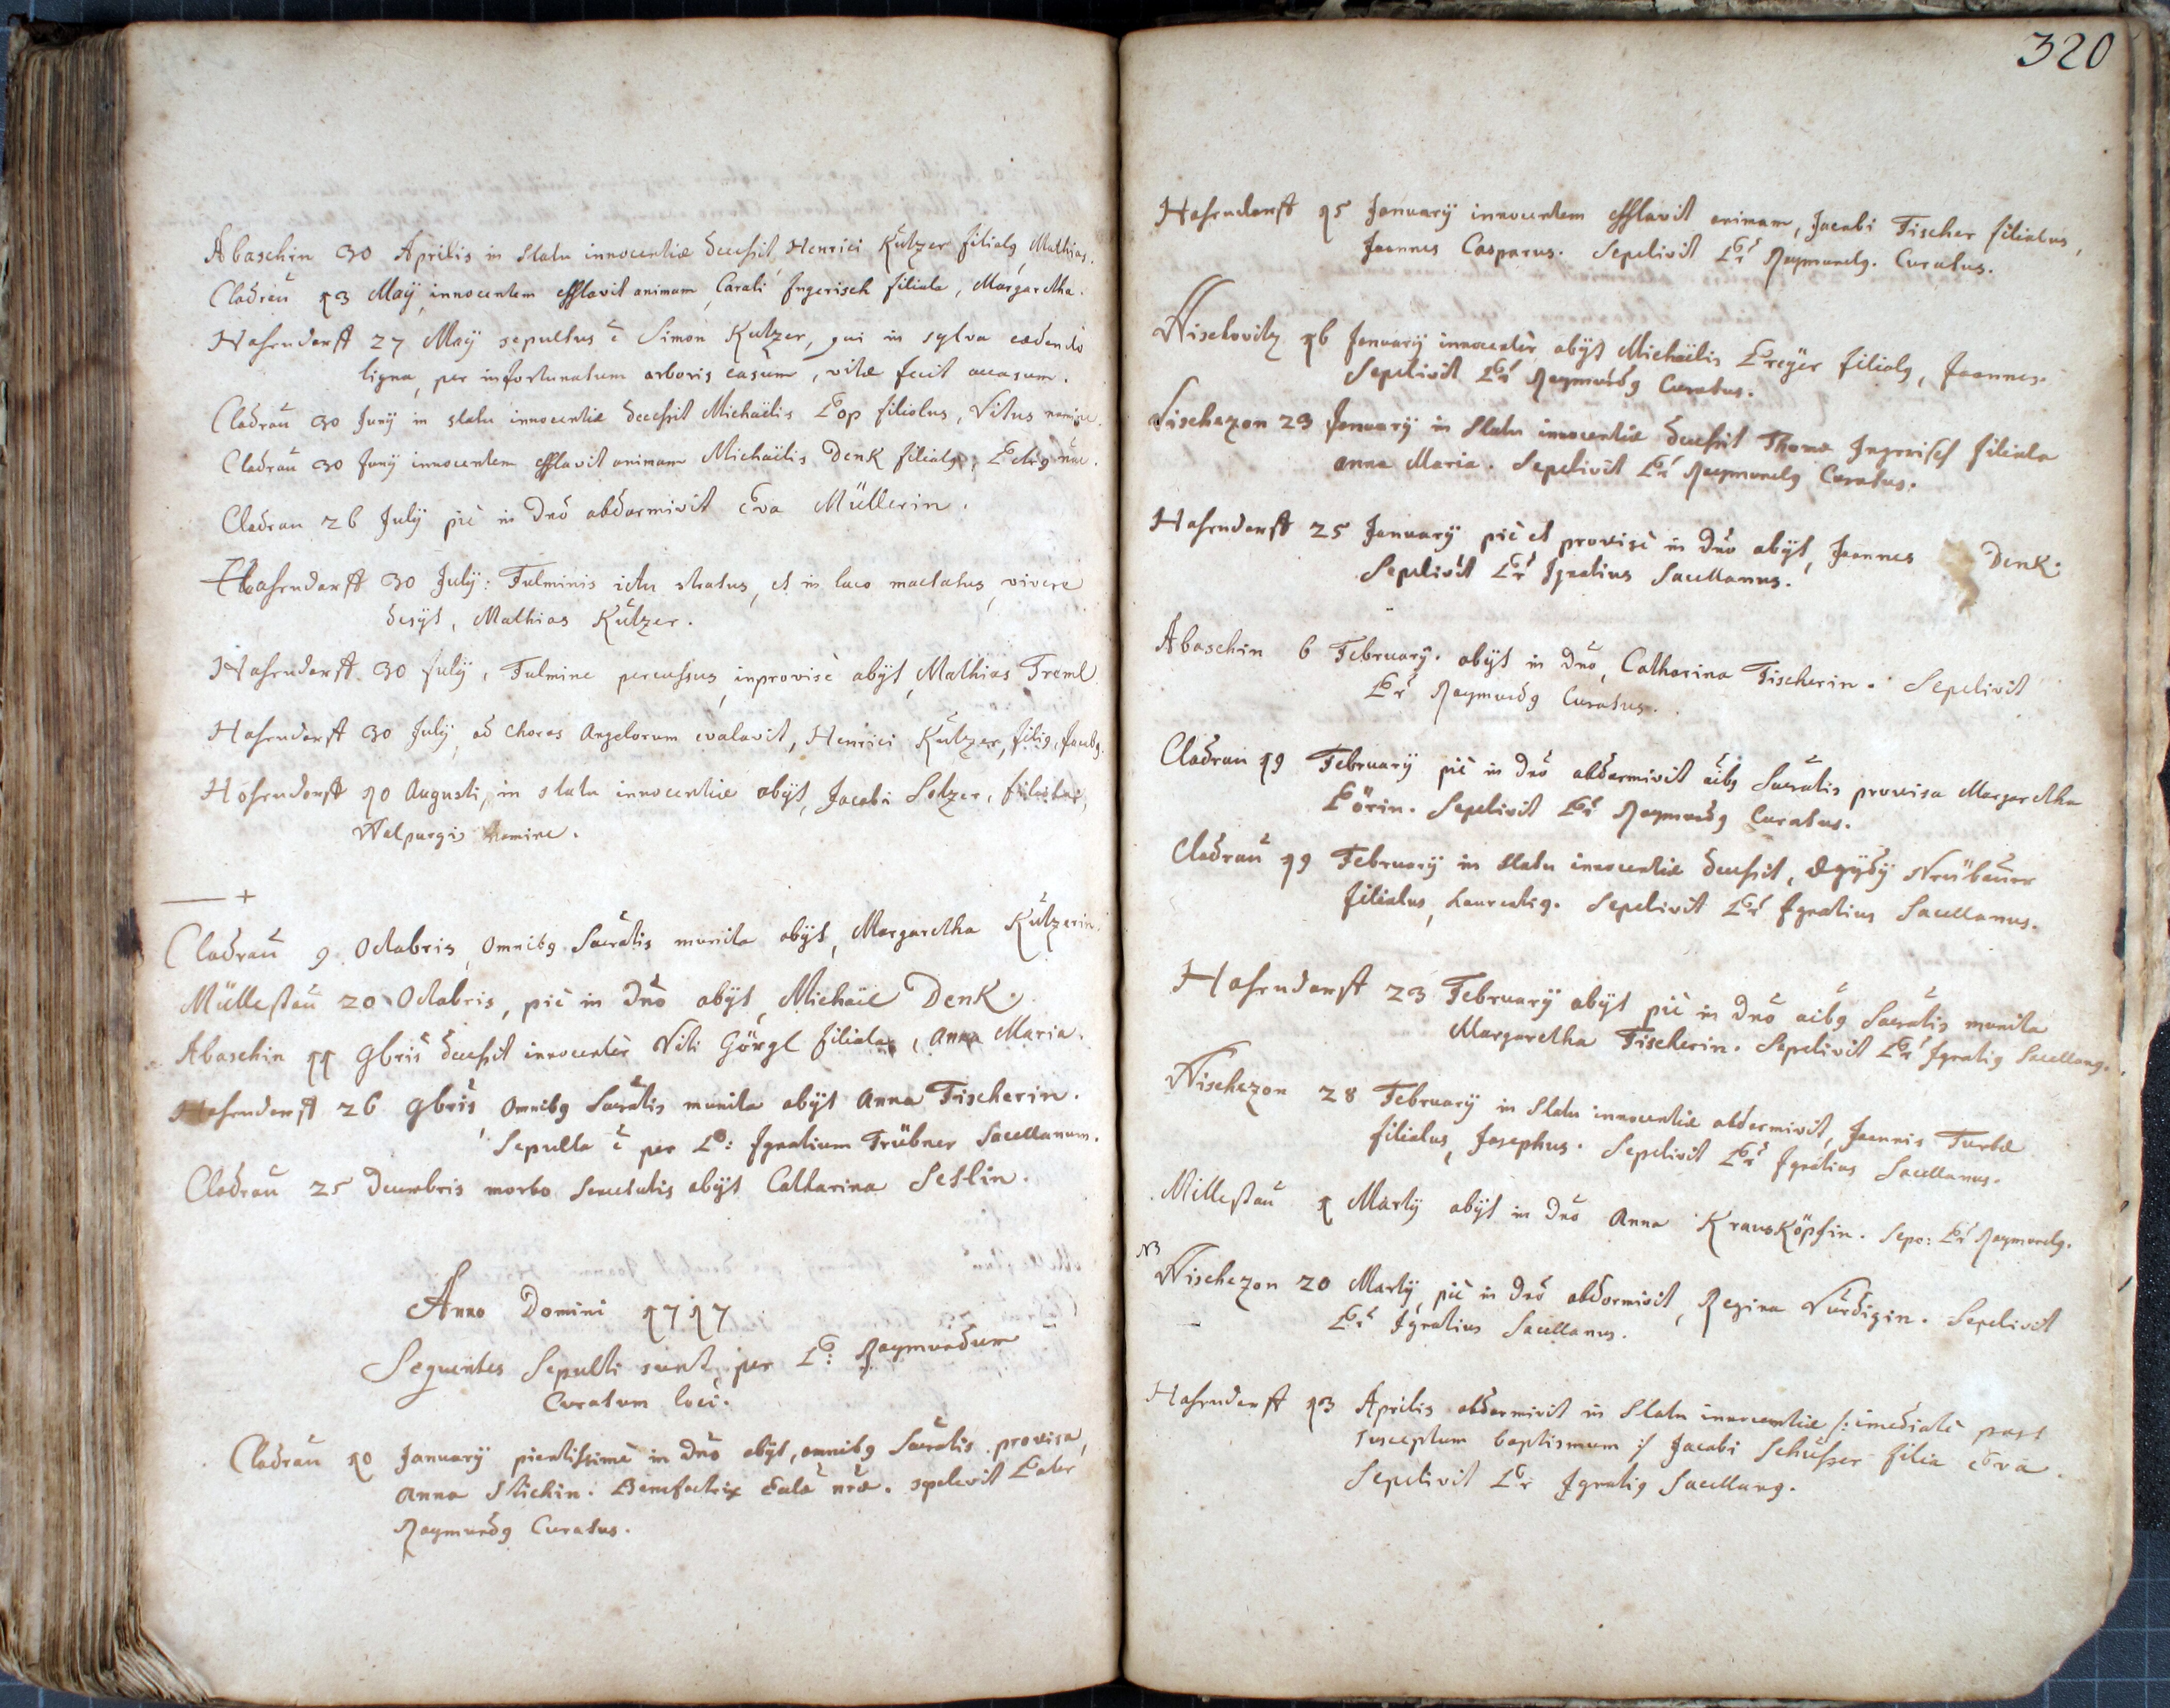 Abaschin 30 Aprilis in statu innocentiæ decessit Henrici Kutzer filiolꝰ Mathias.
Cladrau 13 Maÿ, innocentem efflavit animam, Caroli Ingerisch filiola, Margaretha.
Hahndorff 27 Maÿ sepultus ē Simon Kutzer, qui in sylva cædendo
ligna, per infortunatum arboris casum, vitæ fecit occasum.
Cladrau 30 Junÿ in statu innocentiæ decessit Michaëlis Pop filiolus, Vitus nomine.
Cladrau 30 Junÿ innocentem efflavit animam Michaëlis Denk filiolꝰ, Petrꝰ
Cladrau 26 Julÿ piè in Dnō obdormivit Eva Müllerin.
Hahndorff 30 Julÿ: Fulminis ictu stratus, et in loco mactatus, vivere
desÿt, Mathias Kutzer.
Hahndorff 30 Julÿ, Fulmine percussus, inprovisè obÿt, Mathias Treml
Hahndorff 30 Julÿ ad choros Angelorum evolavit, Henrici Kutzer, filiꝰ, Jacobꝰ.
Hahndorff 10 Augusti, in statu innocentiæ obÿt, Jacobi Setzer, filiola,
Walpurgis nomine.
Cladrau 9 Octobris, omnibꝰ Sacrātis munita obÿt, Margaretha Kutzerin.
Müllestau 20 Octobris, piè in Dnō obÿt, Michaël Denk.
Abaschin 11 9bris decessit innocenter Viti Görgl filiola, Anna Maria.
Hahndorff 26 9bris, omnibꝰ Sacrātis munita obÿt Anna Fischerin.
Sepulta ē per P: Ignatium Trübner Sacellanum.
Cladrau 25 Decembris morbo senectutis obÿt Catharina Seslin.
Anno Domini 1717
Sequentes Sepulti sunt per P: Raymundum
Curatum loci.
Cladrau 10 Januarÿ pientissimè in Dnō obÿt, omnibꝰ Sacrātis provisa,
Anna Stichin. Benefactrix nrǣ. sepelivit Pater
Raymundꝰ Curatus.
320
Hahndorff 15 Januarÿ innocentem efflavit animam, Jacobi Fischer filiolus,
Joannes Casparus. Sepelivit Pr Raymundꝰ. Curatus.
Wischovitz 16 Januarÿ innocenter obÿt Michaëlis Preÿer filiolꝰ, Joannes.
Sepelivit Pr Raymundꝰ Curatus.
Vischezon 23 Januarÿ in statu innocentiæ decessit Thomæ Ingrisch filiola
Anna Maria. Sepelivit Pr Raymundꝰ Curatus.
Hahndorff 25 Januarÿ piè et provisè in Dnō obÿt, Joannes Denk.
Sepelivit Pr Ignatius Sacellanus.
Abaschin 6 Februarÿ. obÿt in Dnō, Catharina Fischerin. Sepelivit
Pr Raymundꝰ Curatus.
Cladrau 19 Februarÿ piè in Dnō obdormivit oibꝰ Sacrātis provisa Margaretha
Pörin. Sepelivit Pr Raymundꝰ Curatus.
Cladrau 19 Februarÿ in statu innocentiæ decessit, Egÿdÿ Neübauer
filiolus, Laurentiꝰ. Sepelivit Pr Ignatius Sacellanus.
Hahndorff 23 Februarÿ obÿt piè in Dnō oibꝰ Sacrātis munita
Margaretha Fischerin. Sepelivit Pr Ignatiꝰ Sacellanꝰ.
Wischezon 28 Februarÿ in statu innocentiæ obdormivit, Joannis Turbæ
filiolus, Josephus. Sepelivit Pr Ignatius Sacellanus.
Millestau 1 Martÿ obÿt in Dnō Anna Krausköpfin. Sepe: Pr Raymundꝰ.
NB
Wischezon 20 Martÿ piè in Dnō obdormivit, Regina Vurdigin. Sepelivit
Pr Ignatius Sacellanus.
Hahndorff 13 Aprilis obdormivit in statu innocentiæ /: imediatè post
susceptum baptismum :/ Jacobi Schusser filia Eva.
Sepelivit Pr Ignatiꝰ Sacellanꝰ.